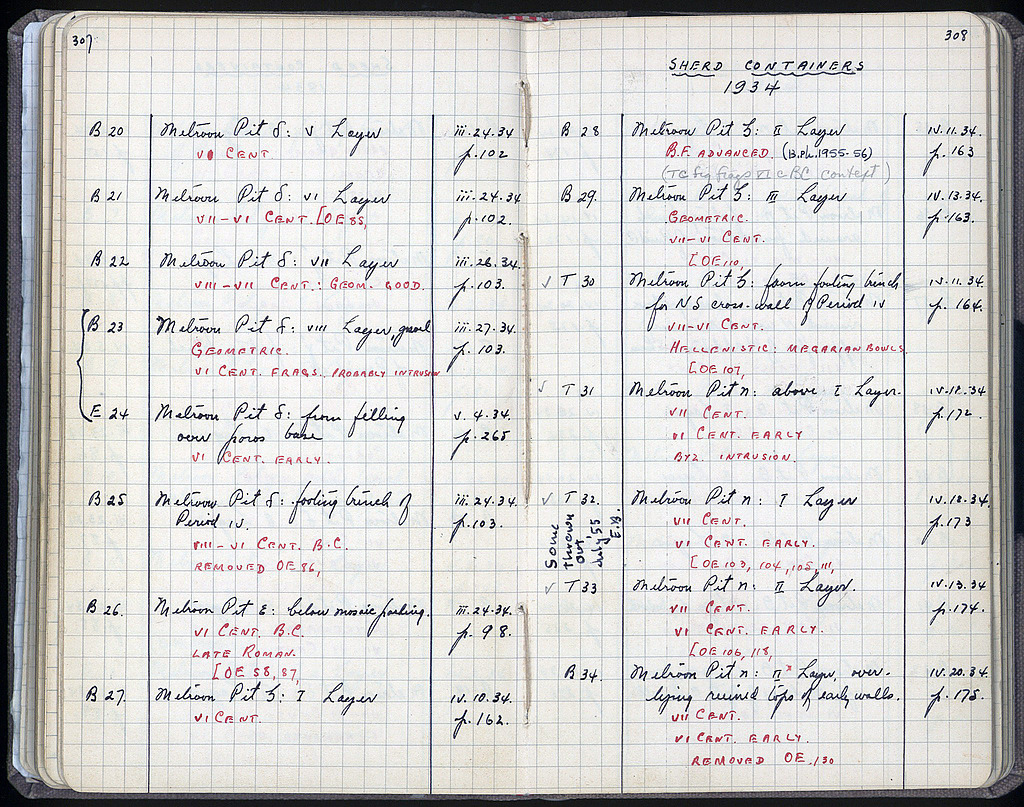 307
B 20 Metroon Pit δ: V Layer iii.24.34
VI CENT. p.102
B 21 Metroon Pit δ: VI Layer iii.24.34
VII-VI CENT. [OE 85, p.102.
B 22 Metroon Pit δ: VII Layer iii.26.34.
VIII-VII CENT.: GEOM. GOOD. p.103.
B 23 Metroon Pit δ: VIII Layer, gravel iii.27.34.
GEOMETRIC. p.103.
VI CENT. FRAGS. PROBABLY INTRUSION
E 24 Metroon Pit δ: from filling v.4.34.
over poros base p.265
VI CENT. EARLY.
B 25 Metroon Pit δ: footing trench of iii.24.34.
Period IV. p.103.
VIII-VI CENT. B.C.
REMOVED OE 86,
B 26. Metroon Pit ε: below mosaic packing. iii.24.34
VI CENT. B.C. p.98.
LATE ROMAN.
[OE 58, 87,
B 27. Metroon Pit ζ: I Layer iv.10.34.
VI CENT. p.162.
308
SHERD CONTAINERS
1934
B 28 Metroon Pit ζ: II Layer iv.11.34.
B.F. ADVANCED. (B.Ph. 1955-56) p.163
(TC fig frags VI c BC context)
B 29. Metroon Pit ζ: III Layer iv.13.34.
GEOMETRIC. p.163.
VII-VI CENT.
[OE 110,
✓ T 30 Metroon Pit ζ: from footing trench iv.11.34
for NS cross-wall of Period IV p.164.
VII-VI CENT.
HELLENISTIC: MEGARIAN BOWLS.
[OE 107,
✓ T 31 Metroon Pit η: above I Layer. iv.18.34
VII CENT. p.172
VI CENT. EARLY
BYZ. INTRUSION.
✓ T 32. Metroon Pit η: I Layer iv.18.34
VII CENT. p.173
VI CENT. EARLY.
[OE 103, 104, 105, 111,
Some
thrown
out,
July '55
E.B.
✓ T 33 Metroon Pit η: II Layer. iv.13.34
VII CENT. p.174.
VI CENT. EARLY.
[OE 106, 118,
B 34. Metroon Pit η: II x Layer, over- iv.20.34.
lying ruined tops of early walls. p.175.
VII CENT.
VI CENT. EARLY.
REMOVED OE 130